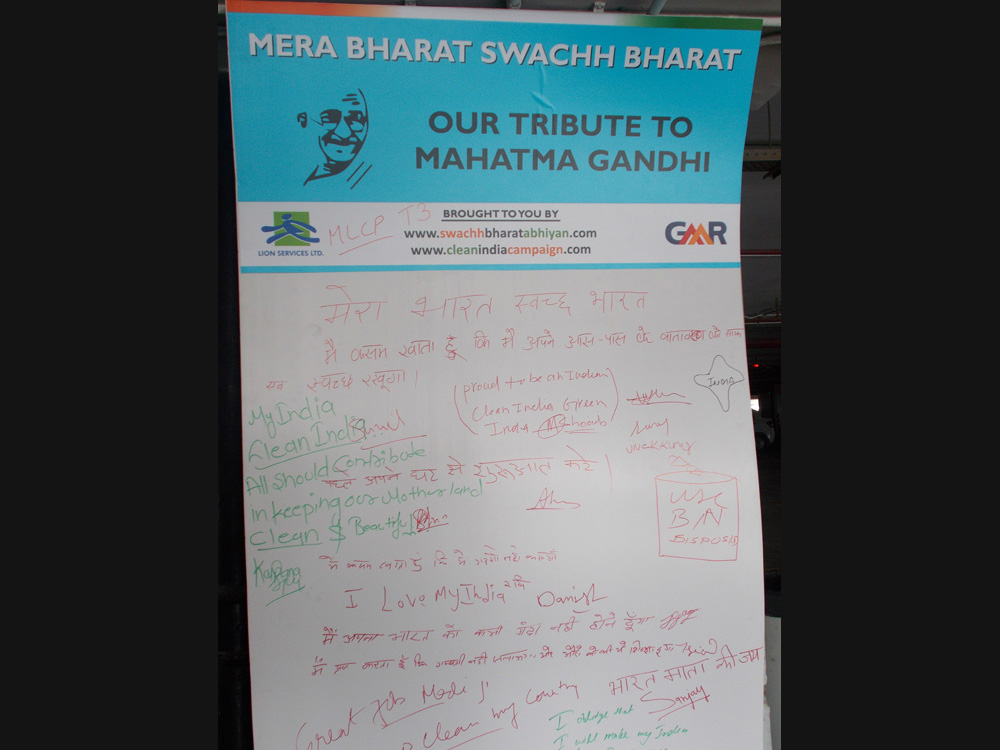 MERA BHARAT SWACHH BHARAT
OUR TRIBUTE TO
MAHATMA GANDHI
LION SERVICES LTD.
MLCP T3
BROUGHT TO YOU BY
www.swachhbharatabhiyan.com
www.cleanindiacampaign.com
GMR
मेरा भारत स्वच्छ भारत
मै कसम खाता हूँ कि मै अपने आस-पास के वातावरण को साफ
एवं स्वच्छ रखूंगा।
My India
Clean India
All Should Contribute
in keeping our Mother land
Clean & Beautiful
Kalpana
proud to be an Indian
Clean India Green
India
India
अपने घर से शुरुआत करे।
USE
BIN
DISPOSAL
I Love My India रवि
Danish
मैं अपना भारत को कभी गंदा नहीं होने दूँगा
भारत माता की जय
Sanjay
Great Job Modi Ji
clean my country
I oblidge that
I will make my India